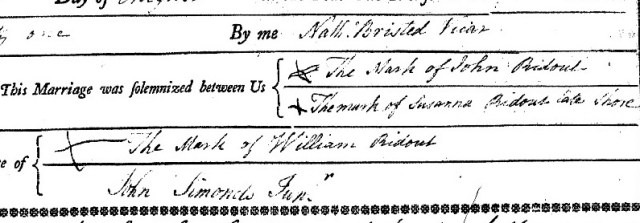 Day of
one By me Nath. Bristed Vicar
This Marriage was solemnized between Us { The Mark of John Ridout
The mark of Susanna Ridout late Shore
e of { The Mark of William Ridout
John Simonds Junr